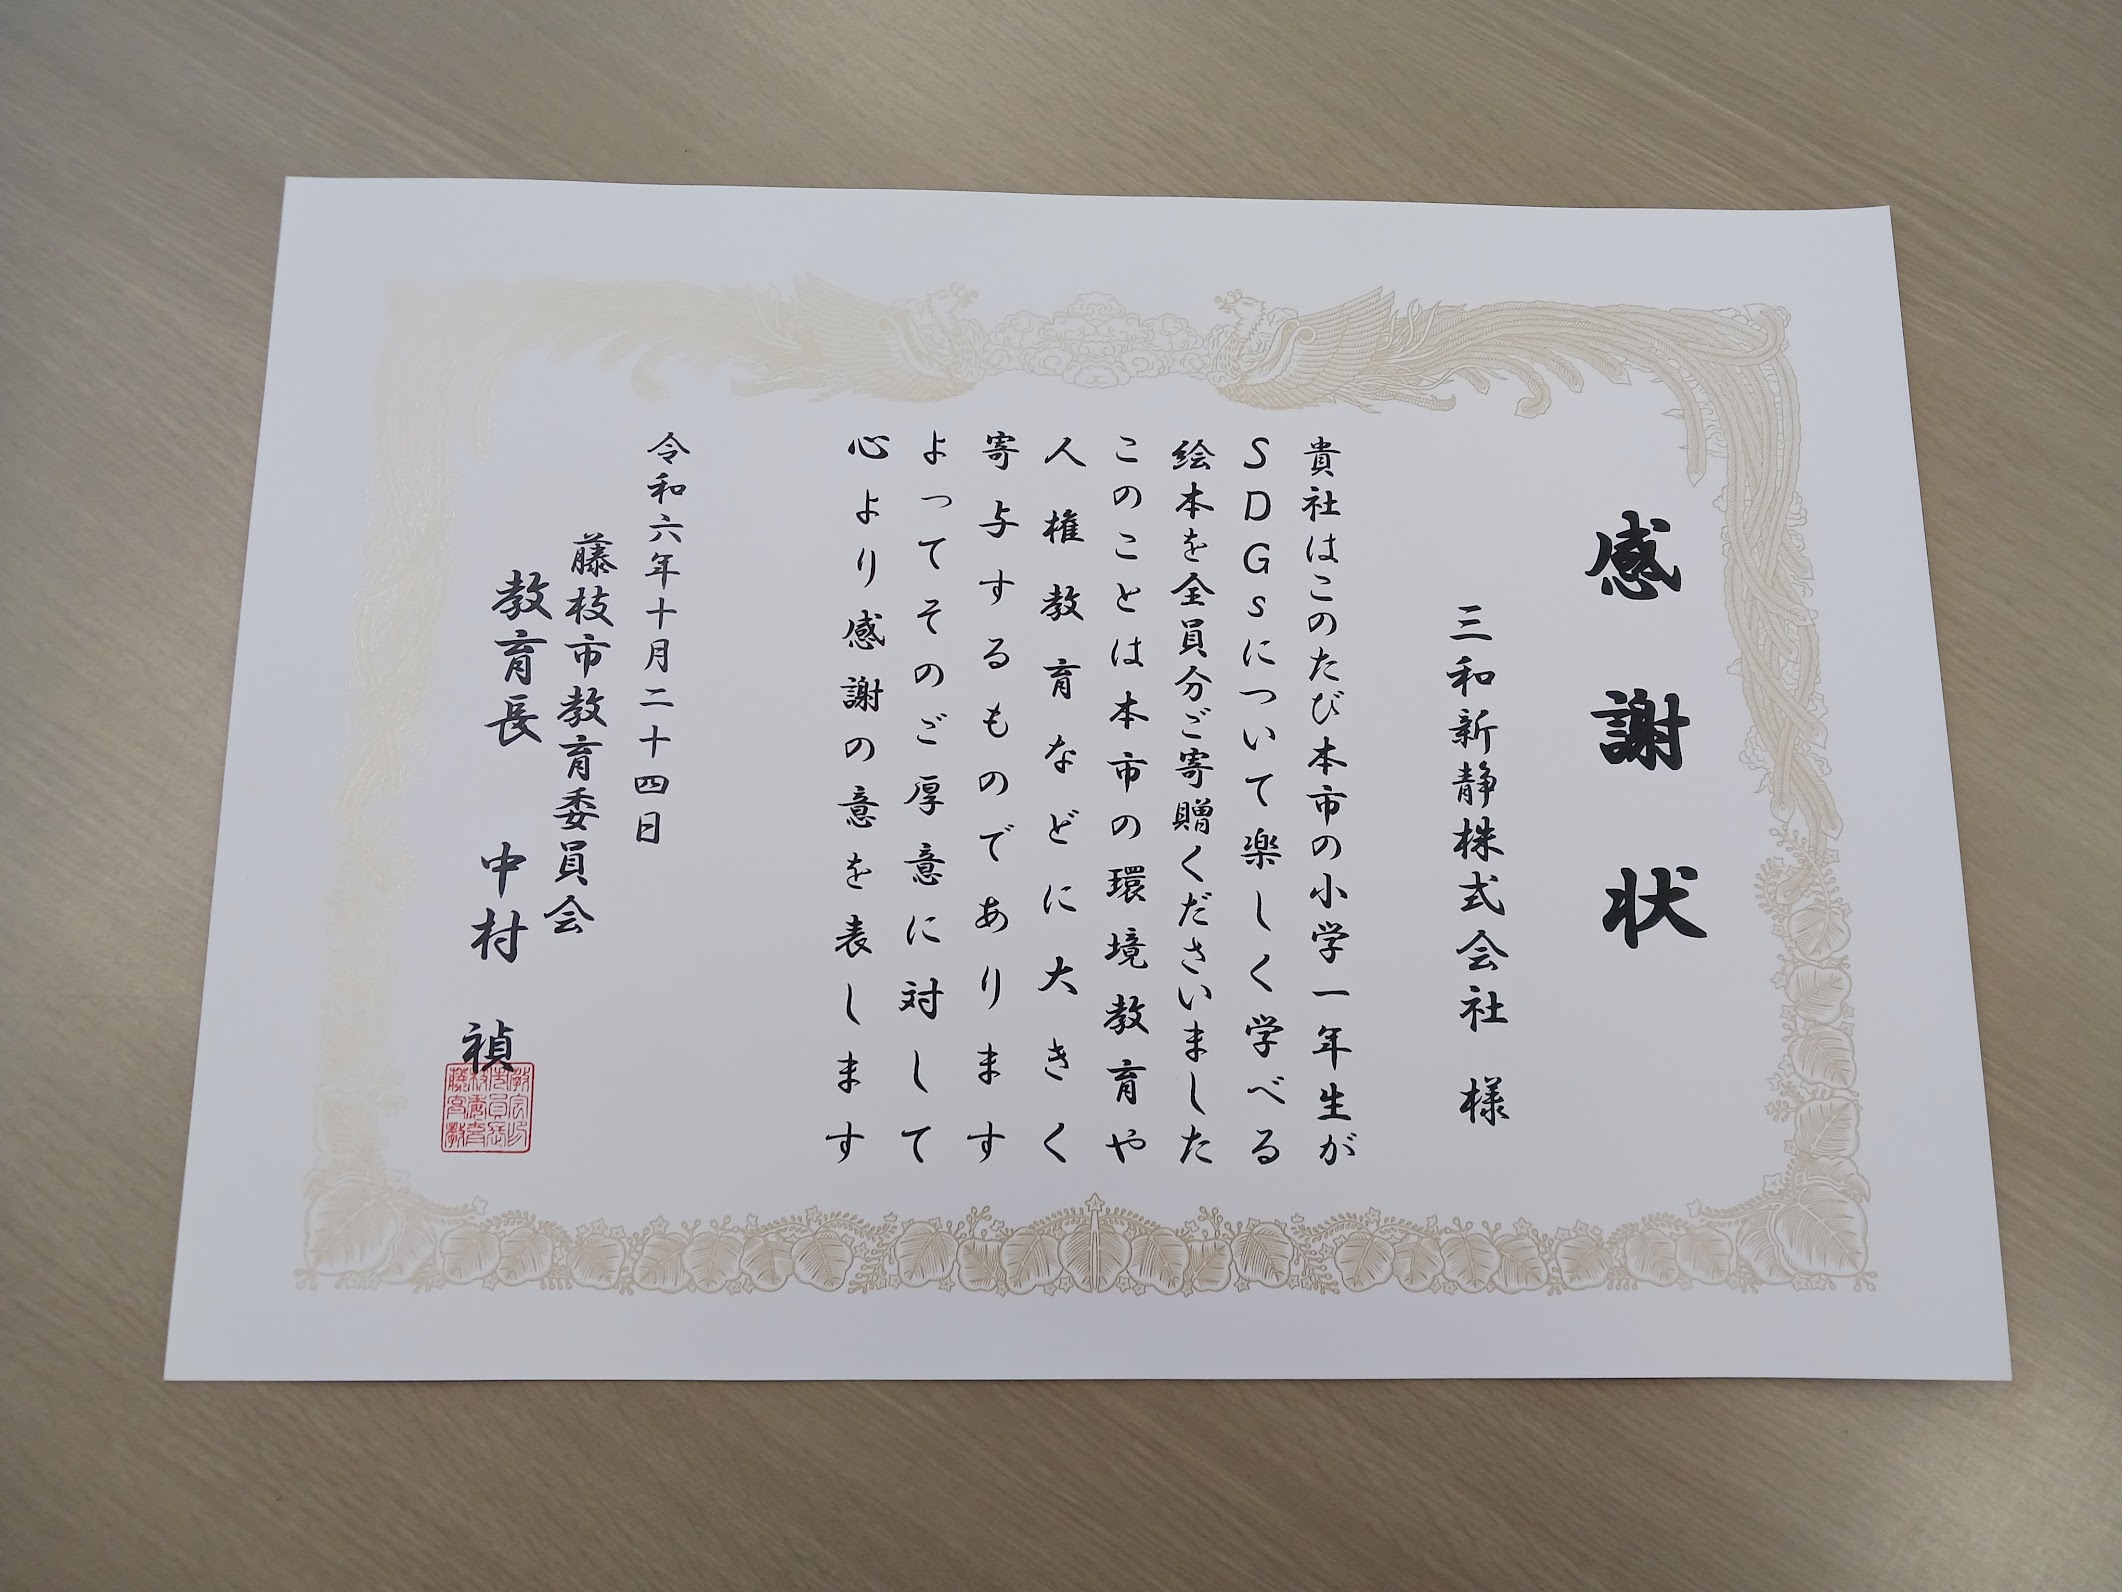 感謝状
三和新静株式会社 様
貴社はこのたび本市の小学一年生が
ＳＤＧｓについて楽しく学べる
絵本を全員分ご寄贈くださいました
このことは本市の環境教育や
人権教育などに大きく
寄与するものであります
よってそのご厚意に対して
心より感謝の意を表します
令和六年十月二十四日
藤枝市教育委員会
教育長 中村 禎